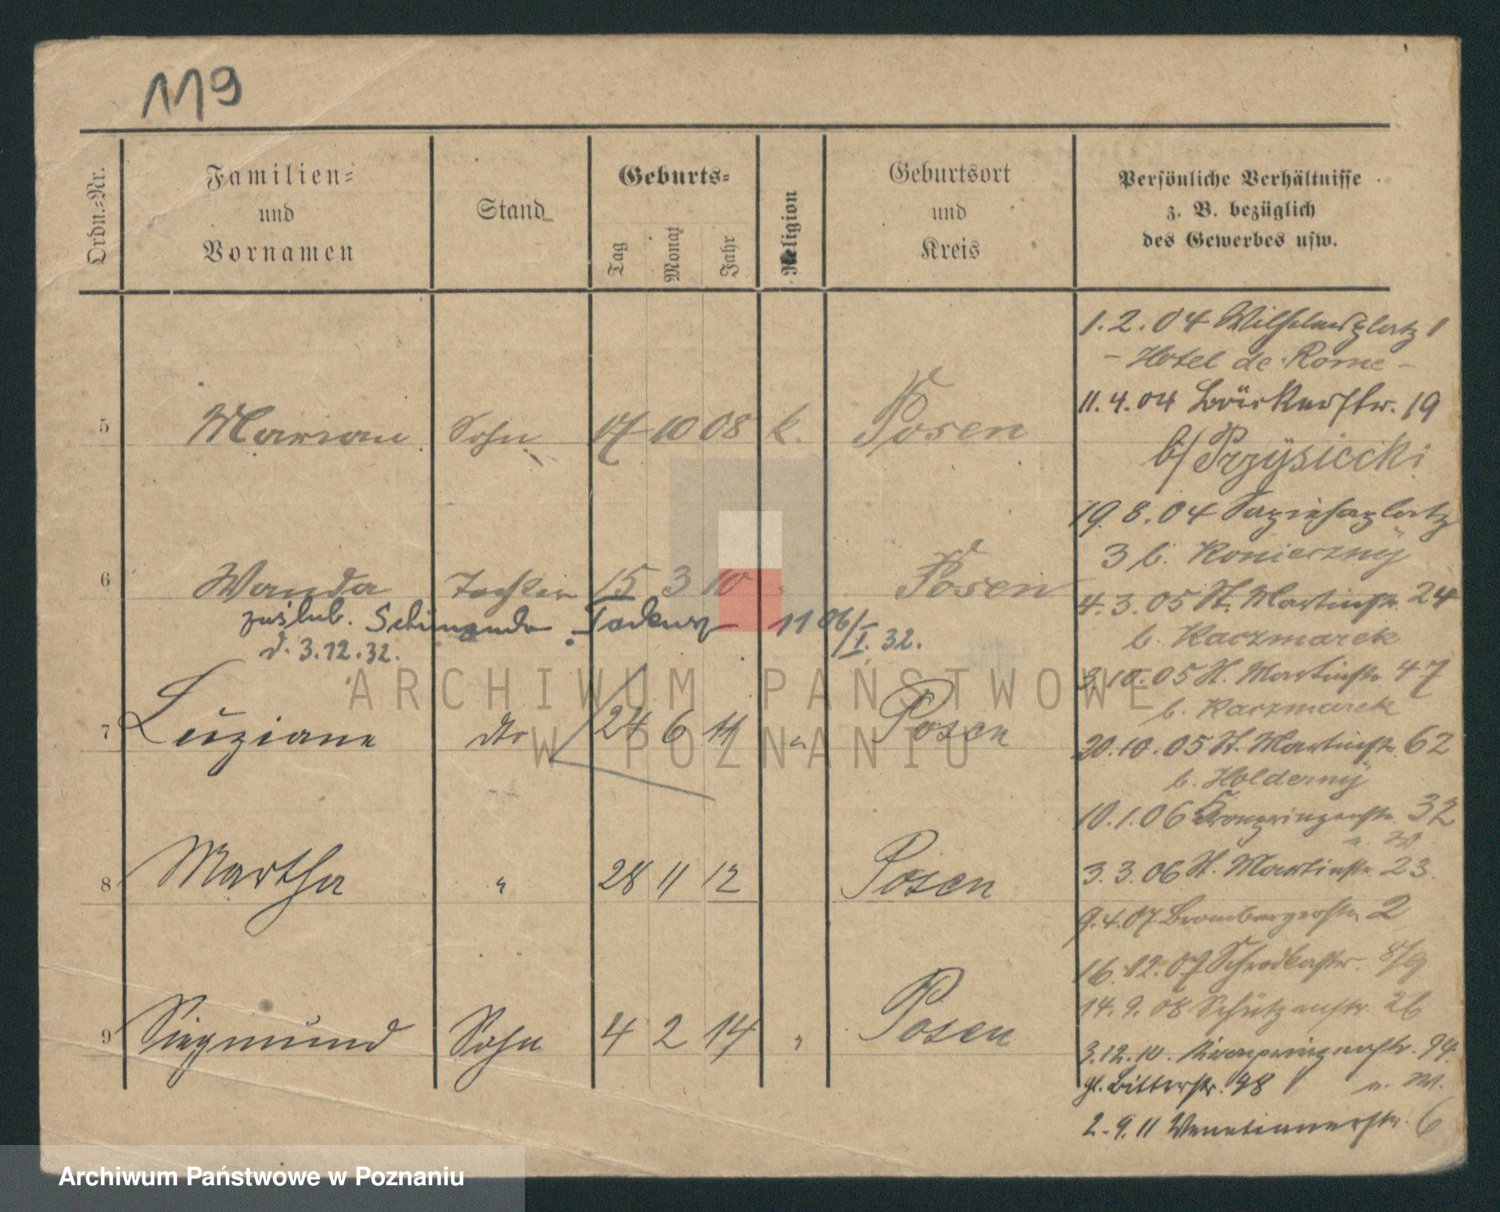 119
Ordn.-Nr.
Familien-
und
Vornamen
Stand
Geburts-
Tag
Monat
Jahr
Religion
Geburtsort
und
Kreis
Persönliche Verhältnisse
z. B. bezüglich
des Gewerbes usw.
5 Marian Sohn 17 10 08 k. Posen
6 Wanda Tochter 15 3 10 " Posen
zaślub. 11 06/I. 32.
d. 3.12.32.
7 Luziane dto 24 6 11 " Posen
8 Martha " 28 11 12 Posen
9 Siegmund Sohn 4 2 14 " Posen
1.2.04 Wilhelmsplatz 1
- Hotel de Rome -
11.4.04 Bäckerstr. 19
b/ Przysiecki
19.8.04 Sapiehaplatz
3 b. Konierzny
4.3.05 St. Martinstr. 24
b. Kaczmarek
3.10.05 St. Martinstr. 47
b. Kaczmarek
20.10.05 St. Martinstr. 62
b. Holderny
10.1.06 Kronprinzenstr. 32
3.3.06 St. Martinstr. 23.
9.4.07 Brombergerstr. 2
16.12.07 Schrodkastr. 8/9
14.9.08 Schützenstr. 26
3.12.10. Kronprinzenstr. 94.
gl. Bitterstr. 98 n. W.
2.9.11 Venetianerstr. 6
ARCHIWUM PAŃSTWOWE
W POZNANIU
Archiwum Państwowe w Poznaniu